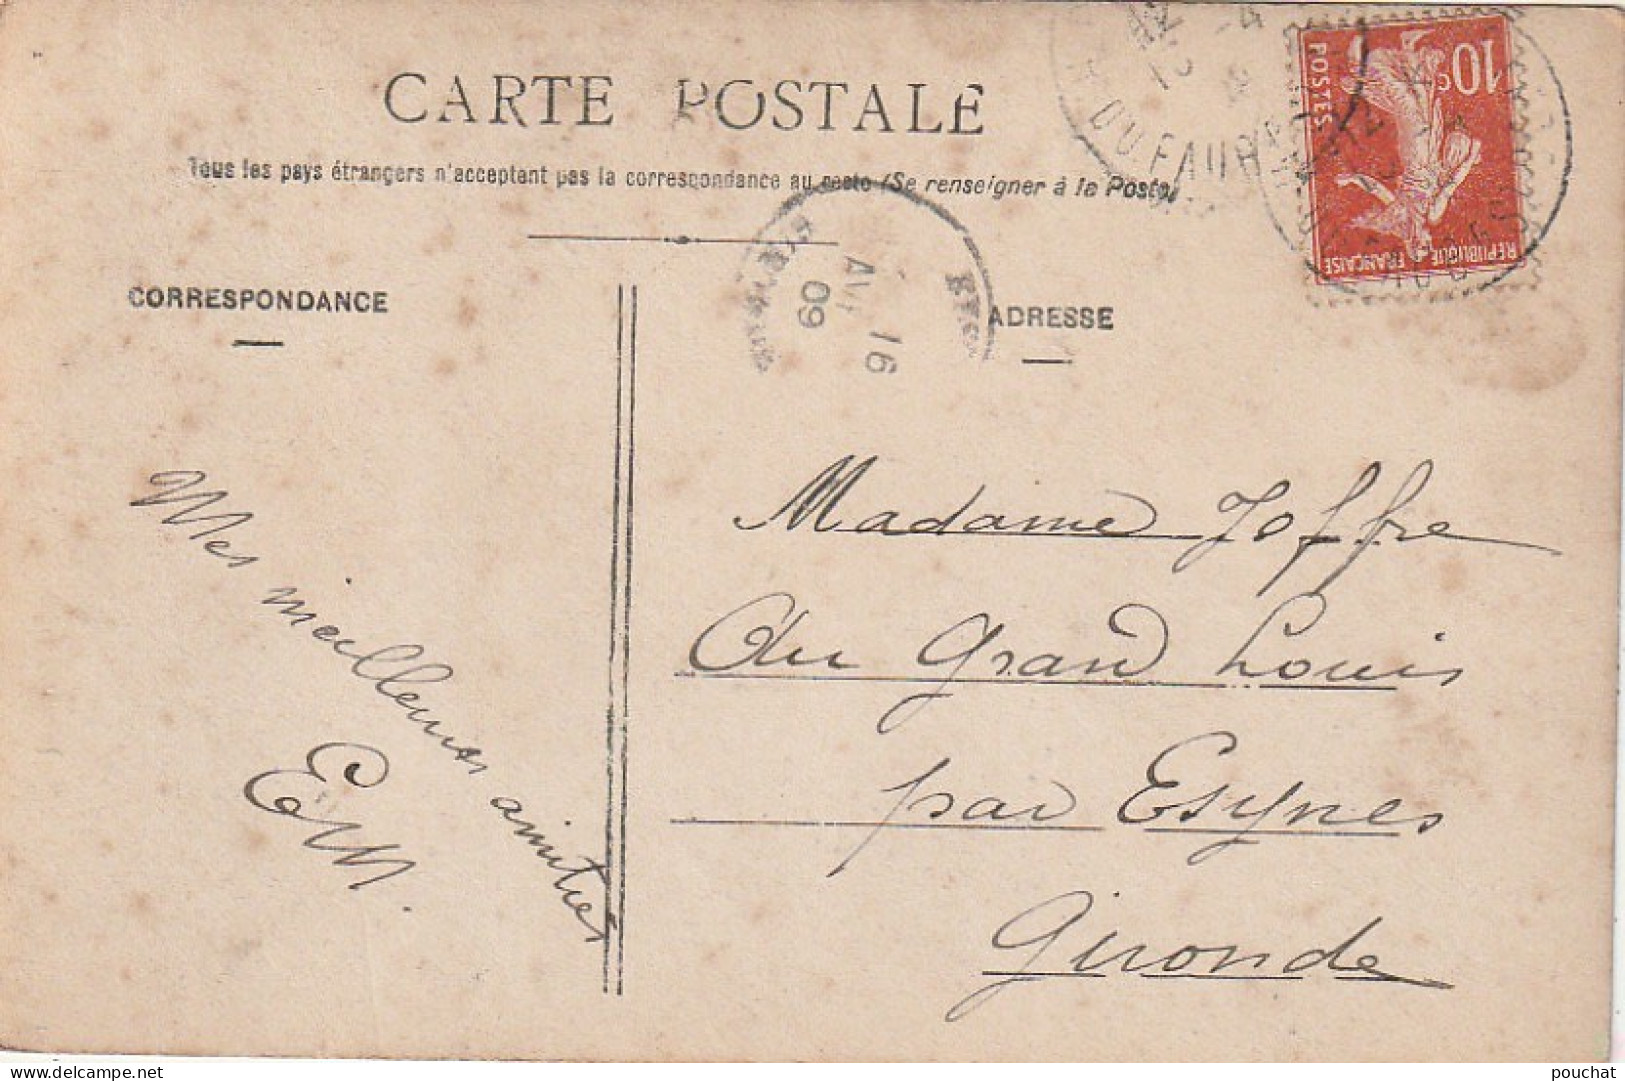 CARTE POSTALE
Tous les pays étrangers n'acceptent pas la correspondance au recto (Se renseigner à la Poste)
CORRESPONDANCE
ADRESSE
10c
POSTES
RÉPUBLIQUE FRANÇAISE
DU FAUB
AVR
16
09
Mes meilleures amitiés
EM.
Madame Joffre
Au Grand Louis
par Esynes
Gironde
pouchat